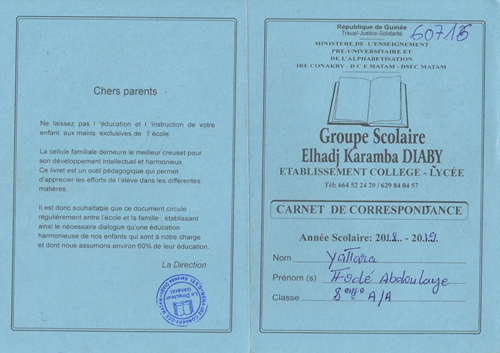 Chers parents
Ne laissez pas l 'éducation et l instruction de votre
enfant aux mains exclusives de l' école.
La cellule familiale demeure le meilleur creuset pour
son développement intellectuel et harmonieux
Ce livret est un outil pédagogique qui permet
d'apprécier les efforts de l'élève dans les différentes
matières.
Il est donc souhaitable que ce document circule
régulièrement entre l'école et la famille , établissant
ainsi le necessaire dialogue qu'une éducation
harmonieuse de nos enfants qui sont à notre charge
et dont nous assumons environ 60% de leur éducation.
La Direction
Le Directeur
Général
République de Guinée
Travail-Justice-Solidarité
MINISTERE DE L'ENSEIGNEMENT
PRE-UNIVERSITAIRE ET
DE L'ALPHABETISATION
IRE CONAKRY - D C E MATAM - DSEC MATAM
Groupe Scolaire
Elhadj Karamba DIABY
ETABLISSEMENT COLLEGE - LYCÉE
Tél: 664 52 24 20 / 629 84 04 57
CARNET DE CORRESPONDANCE
Année Scolaire: 2018.. - 2019.
Nom Yattara
Prénom (s) Fodé Abdoulaye
Classe 8eme A/A